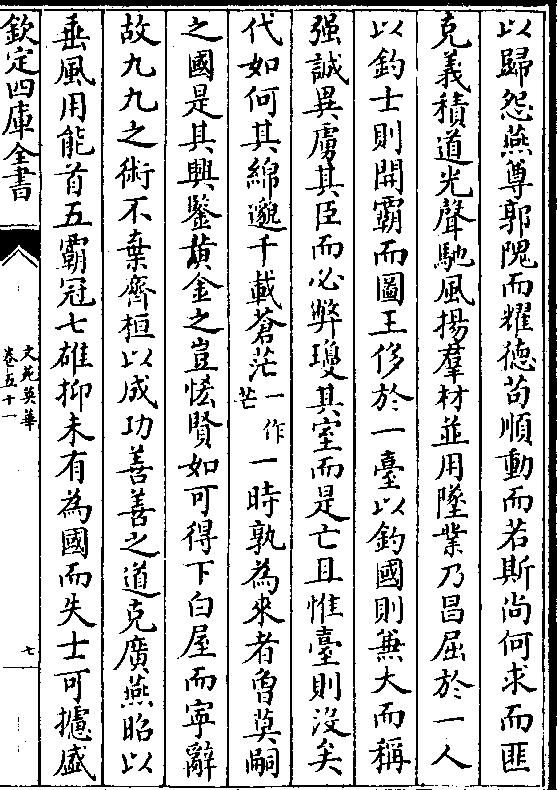 以歸怨燕尊郭隗而耀德茍順動而若斯尚何求而匪
克義積道光聲馳風揚羣材並用墜業乃昌屈於一人
以釣士則開霸而圖王侈於一臺以釣國則兼大而稱
强誠異虜其臣而必弊瓊其室而是亡且惟臺則沒矣
代如何其綿邈千載蒼茫一作茫一時孰為來者曾莫嗣
之國是其興鑒黄金之豈恡賢如可得下白屋而寧辭
故九九之術不棄齊桓以成功善善之道克廣燕昭以
垂風用能首五霸冠七雄抑未有為國而失士可攄盛
欽定四庫全書
文苑英華
卷五十一
七